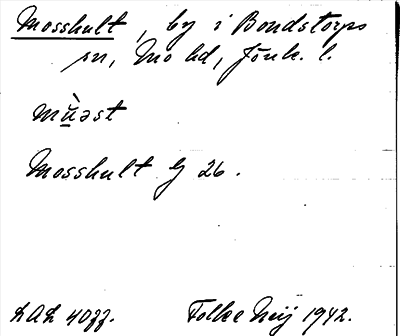 Mosshult, by i Bondstorps
sn, Mo hd, Jönk. l.
mù̲əst
Mosshult G 26.
LAL 4077.
Folke Meij 1942.